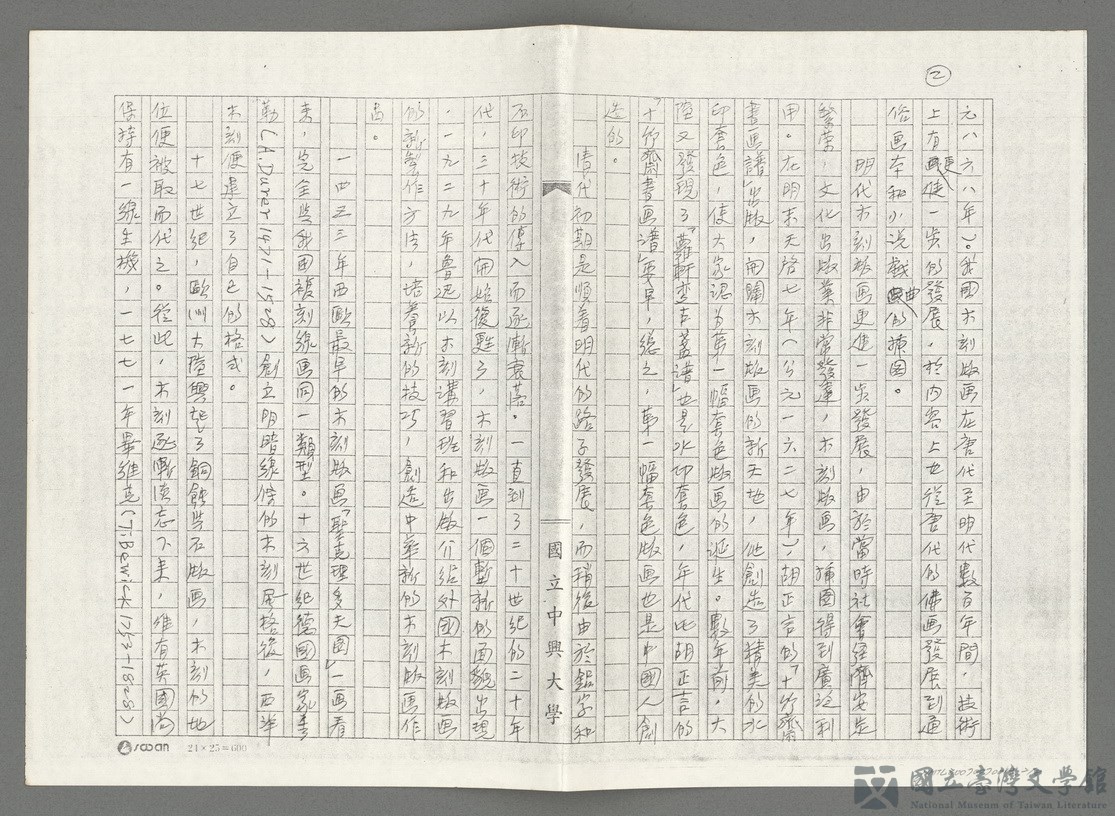 ②
元八六八年）。我國木刻版画在唐代至明代數百年間，技術
上有更進一步的發展，於內容上也從唐代的佛画發展到通
俗画本和小说戲曲的插图。
明代木刻版画更進一步發展，由於當時社會經濟安定
繁荣，文化出版業非常發達，木刻版画，插图得到廣泛利
用。在明末天啓七年（公元一六二七年），胡正言的「十竹齋
書画譜」出版，開闢木刻版画的新天地，他創造了精美的水
印套色，使大家認为第一幅套色版画的诞生。數年前，大
陸又發現了「蘿軒变古蓋谱」也是水印套色，年代比胡正言的
「十竹齋書画谱」要早，總之，第一幅套色版画也是中國人創
造的。
清代初期是順着明代的路子發展，而稍後由於鉛字和
石印技術的傳入而逐漸衰落。一直到了二十世紀的二十年
代，三十年代開始復甦了，木刻版画一個嶄新的面貌出現
，一九二九年魯迅以木刻講習班和出版介绍外國木刻版画
的新製作方法，培養新的技巧，創造中華新的木刻版画作
品。
一四二三年西歐最早的木刻版画「聖克理多夫図」一画看
來，完全與我国複刻線画同一類型。十六世紀德國画家杜
勒（A.Durer 1471-1528）創立明暗線條的木刻風格後，西洋
木刻便建立了自己的格式。
十七世紀，歐洲大陸興起了銅蝕與石版画，木刻的地
位便被取而代之。從此，木刻逐漸遺忘下來，維有英國尚
保持有一線生機，一七七一年畢維克（T.Bewick 1753-1828）
國立中興大學
swan 24×25=600
國立臺灣文學館
National Museum of Taiwan Literature